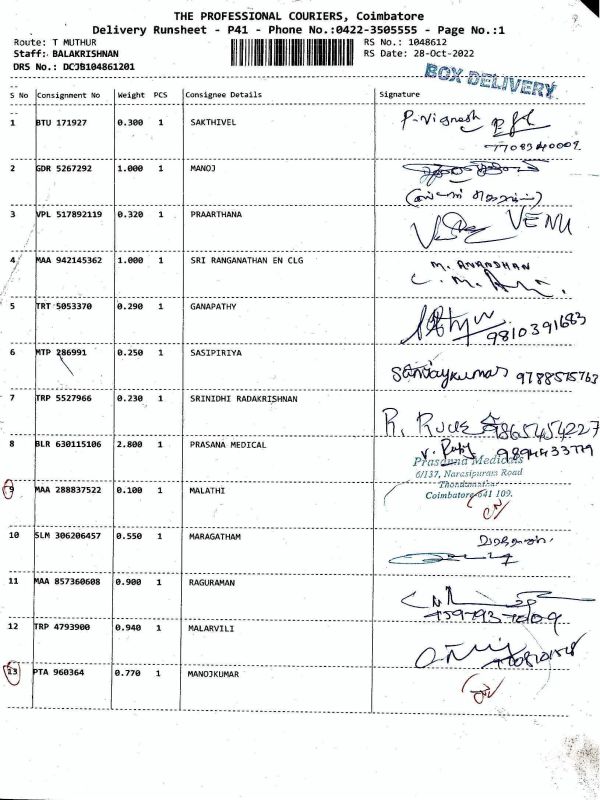 THE PROFESSIONAL COURIERS, Coimbatore
Delivery Runsheet - P41 - Phone No.:0422-3505555 - Page No.:1
Route: T MUTHUR RS No.: 1048612
Staff: BALAKRISHNAN RS Date: 28-Oct-2022
DRS No.: DCJB104861201
BOX DELIVERY
S No Consignment No Weight PCS Consignee Details Signature
1 BTU 171927 0.300 1 SAKTHIVEL P. Vignesh
2 GDR 5267292 1.000 1 MANOJ
3 VPL 517892119 0.320 1 PRAARTHANA VENU
4 MAA 942145362 1.000 1 SRI RANGANATHAN EN CLG M. ANANDHAN
5 TRT 5053370 0.290 1 GANAPATHY 9810391683
6 MTP 286991 0.250 1 SASIPIRIYA Sanjaykumar
7 TRP 5527966 0.230 1 SRINIDHI RADAKRISHNAN
8 BLR 630115106 2.800 1 PRASANA MEDICAL
Prasanna Medicals
6/137, Narasipuram Road
Thondamuthur
Coimbatore-641 109.
9 MAA 288837522 0.100 1 MALATHI
10 SLM 306206457 0.550 1 MARAGATHAM
11 MAA 857360608 0.900 1 RAGURAMAN
12 TRP 4793900 0.940 1 MALARVILI
13 PTA 960364 0.770 1 MANOJKUMAR